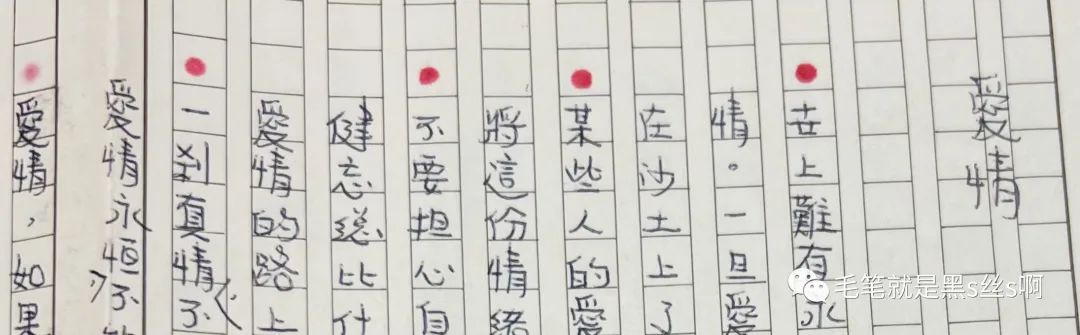 愛情
世上難有永
情。一旦愛
在沙土上了
某些人的愛
將這份情緒
不要担心自
健忘總比什
愛情的路上
一刹真情不
愛情永恒不
愛情,如果
毛笔就是黑s丝s啊